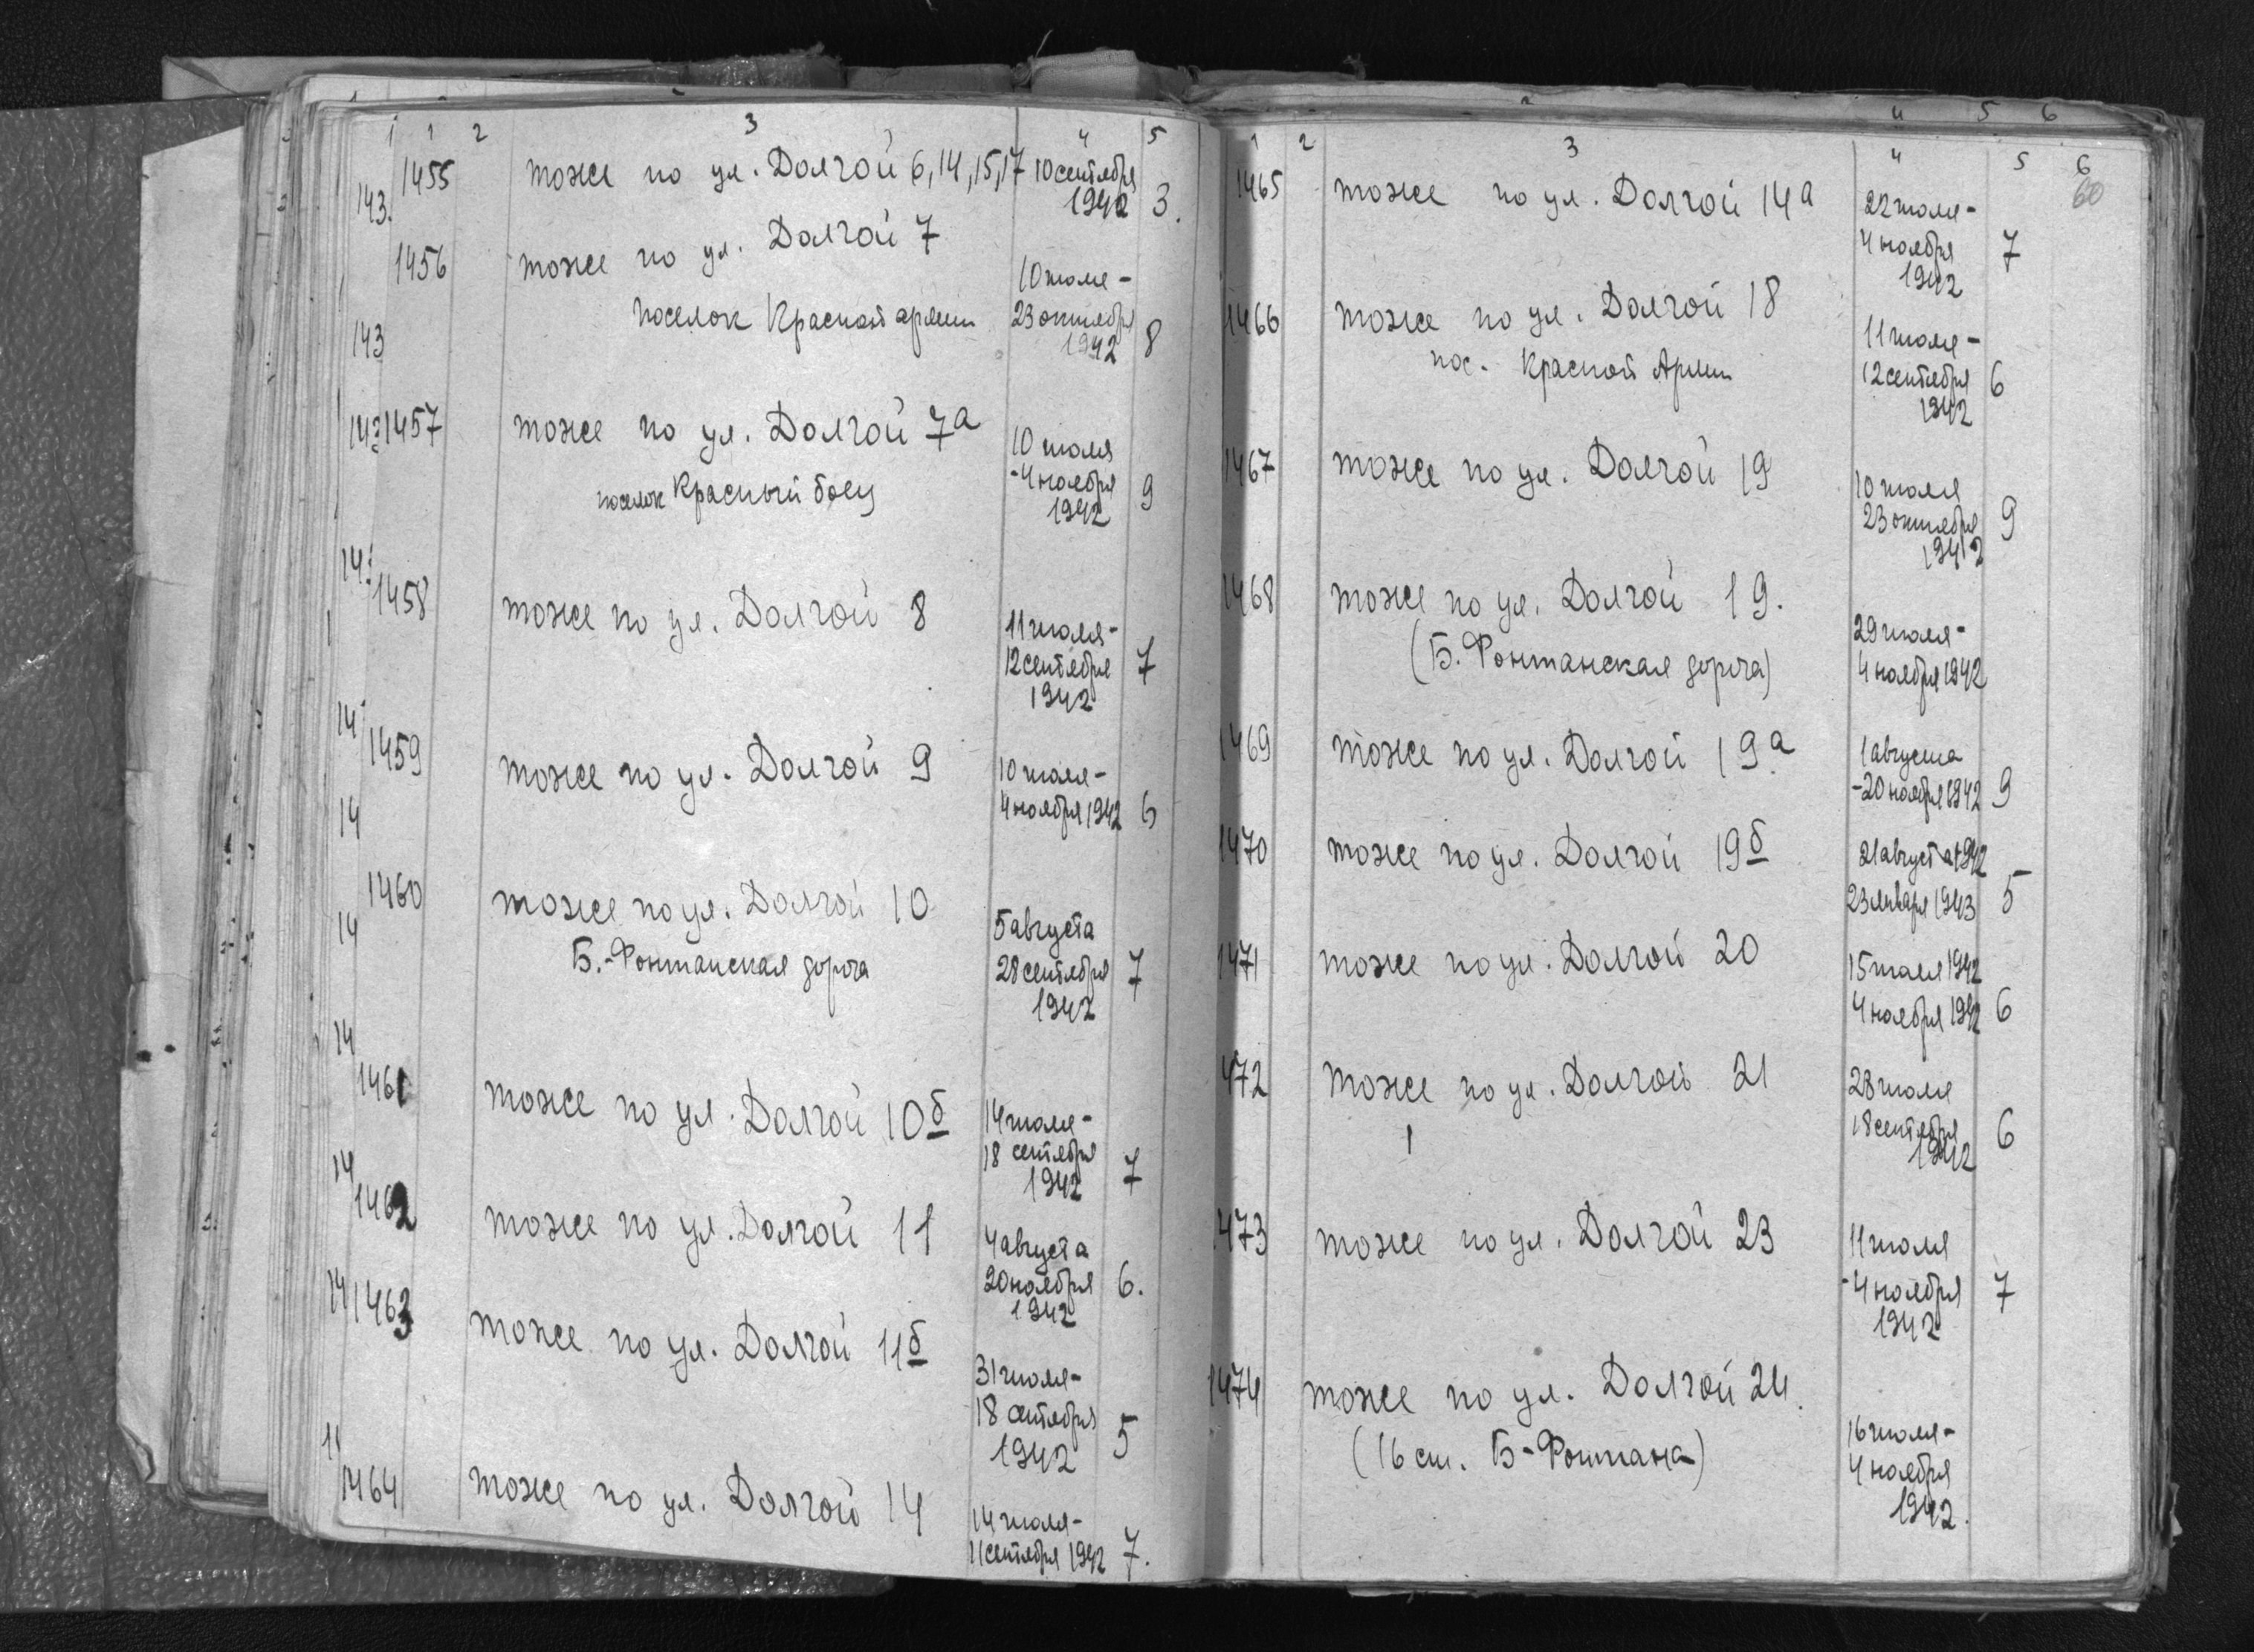 1 2 3 4 5
1455 тоже по ул. Долгой 6, 14, 15, 17 10 сентября
143. 1942 3.
1456 тоже по ул. Долгой 7 10 июля -
поселок Красной армии 23 октября
143 1942 8
143 1457 тоже по ул. Долгой 7а 10 июля
поселок Красный боец - 4 ноября 9
1942
14
1458 тоже по ул. Долгой 8 11 июля -
12 сентября 7
1942
14
1459 тоже по ул. Долгой 9 10 июля -
14 4 ноября 1942 6
1460 тоже по ул. Долгой 10 5 августа
14 Б.-Фонтанская дорога 28 сентября 7
1942
14
1461 тоже по ул. Долгой 10б 14 июля -
18 сентября
14 1942 7
1462 тоже по ул. Долгой 11 4 августа
20 ноября 6.
1942
14 1463 тоже по ул. Долгой 11б 31 июля -
18 октября
1942 5
1464 тоже по ул. Долгой 14 14 июля -
11 сентября 1942 7.
2 4 5 6
1 2 3 4 5 6
60
1465 тоже по ул. Долгой 14а 22 июля -
4 ноября 7
1942
1466 тоже по ул. Долгой 18 11 июля -
пос. Красной Армии 12 сентября 6
1942
1467 тоже по ул. Долгой 19 10 июля
23 октября 9
1942
1468 тоже по ул. Долгой 19. 29 июля -
(Б. Фонтанская дорога) 4 ноября 1942
1469 тоже по ул. Долгой 19а 1 августа
- 20 ноября 1942 9
1470 тоже по ул. Долгой 19б 21 августа 1942
23 января 1943 5
1471 тоже по ул. Долгой 20 15 июля 1942
4 ноября 1942 6
1472 тоже по ул. Долгой 21 28 июля
18 сентября 6
1942
1473 тоже по ул. Долгой 23 11 июля
- 4 ноября 7
1942
1474 тоже по ул. Долгой 24. 16 июля -
(16 ст. Б-Фонтана) 4 ноября
1942.